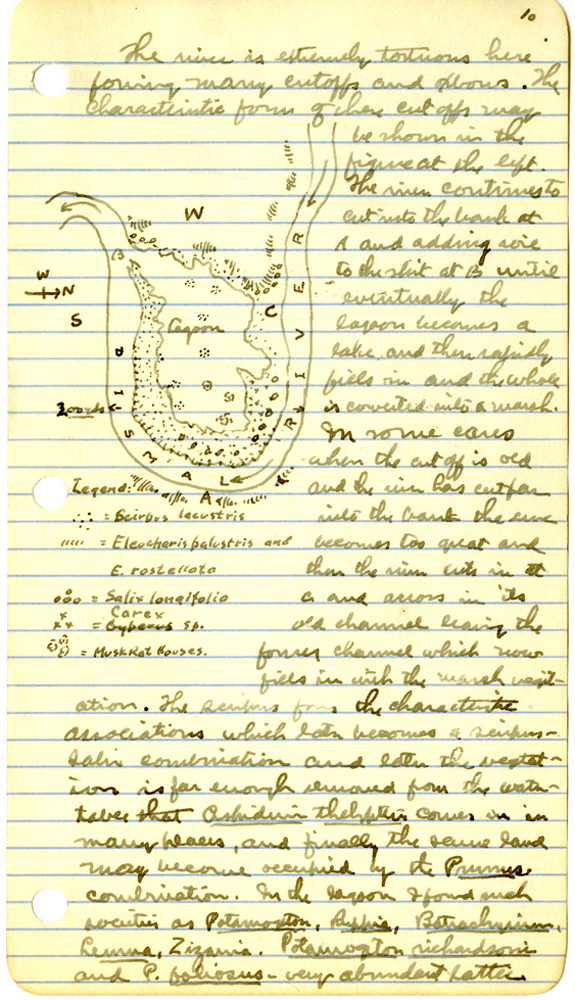 10
The river is extremely tortuous here
forming many cutoffs and oxbows. The
characteristic form of these cut offs may
be shown in the
figure at the left.
The river continues to
cut into the bank at
A and adding
to the at B until
eventually the
lagoon becomes a
lake and then rapidly
fills in and the whole
is converted into a marsh.
In some cases
when the cut off is old
and the river has cut far
into the bank the curve
becomes too great and
then the river cuts in at
C and across in its
old channel leaving the
former channel which now
fills in with the marsh veget-
ation. The scirpus forms the characteristic
associations which later becomes a scirpus-
Salix combination and later the vegetat-
ion is far enough removed from the water-
table that Aspidium thelypteris comes in in
many places, and finally the same land
may become occupied by the Prunus
combination. In the lagoon I found such
societies as Potamogton, Ruppia, Batrachium,
Lemna, Zizania. Potamogton richardsonii
and P. foliosus - very abundant latter
W
W
N
S
B
Lagoon
C
RIVER
DISMAL
A
Legend:
= Scirpus lacustris
= Eleocharis palustris and
E. rostellata
= Salix longifolia
Carex
= Cyperus sp.
= MuskRat Houses.